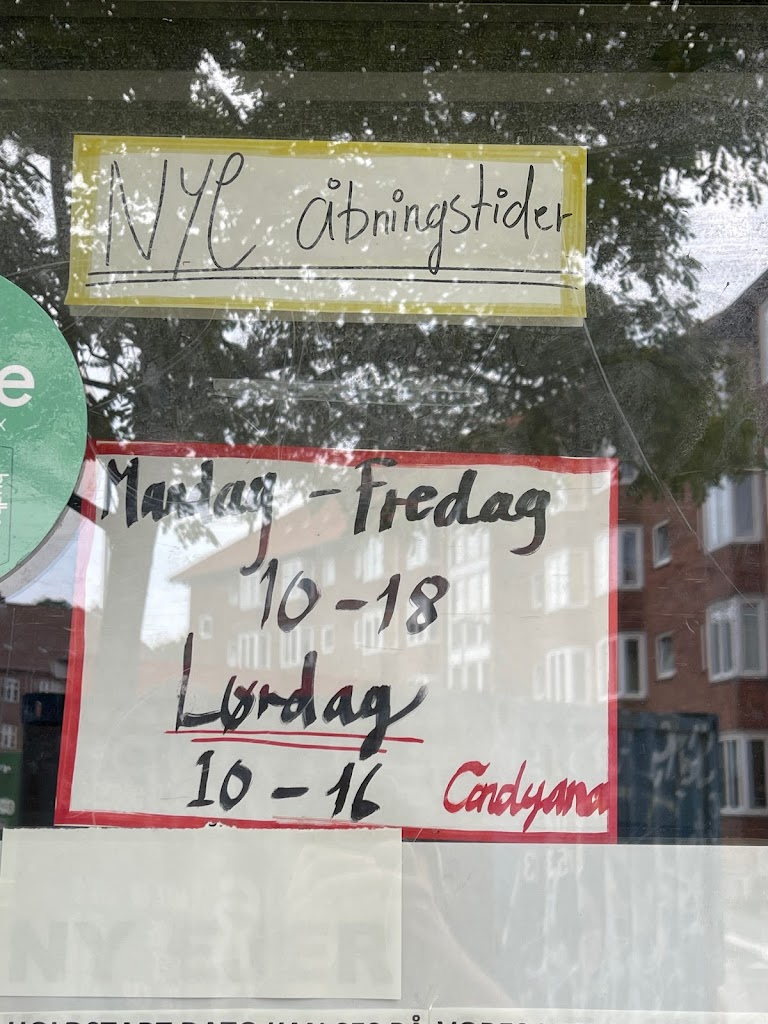 NYE åbningstider
e
Mandag - Fredag
10 - 18
Lørdag
10 - 16
Candyana
NY EJER